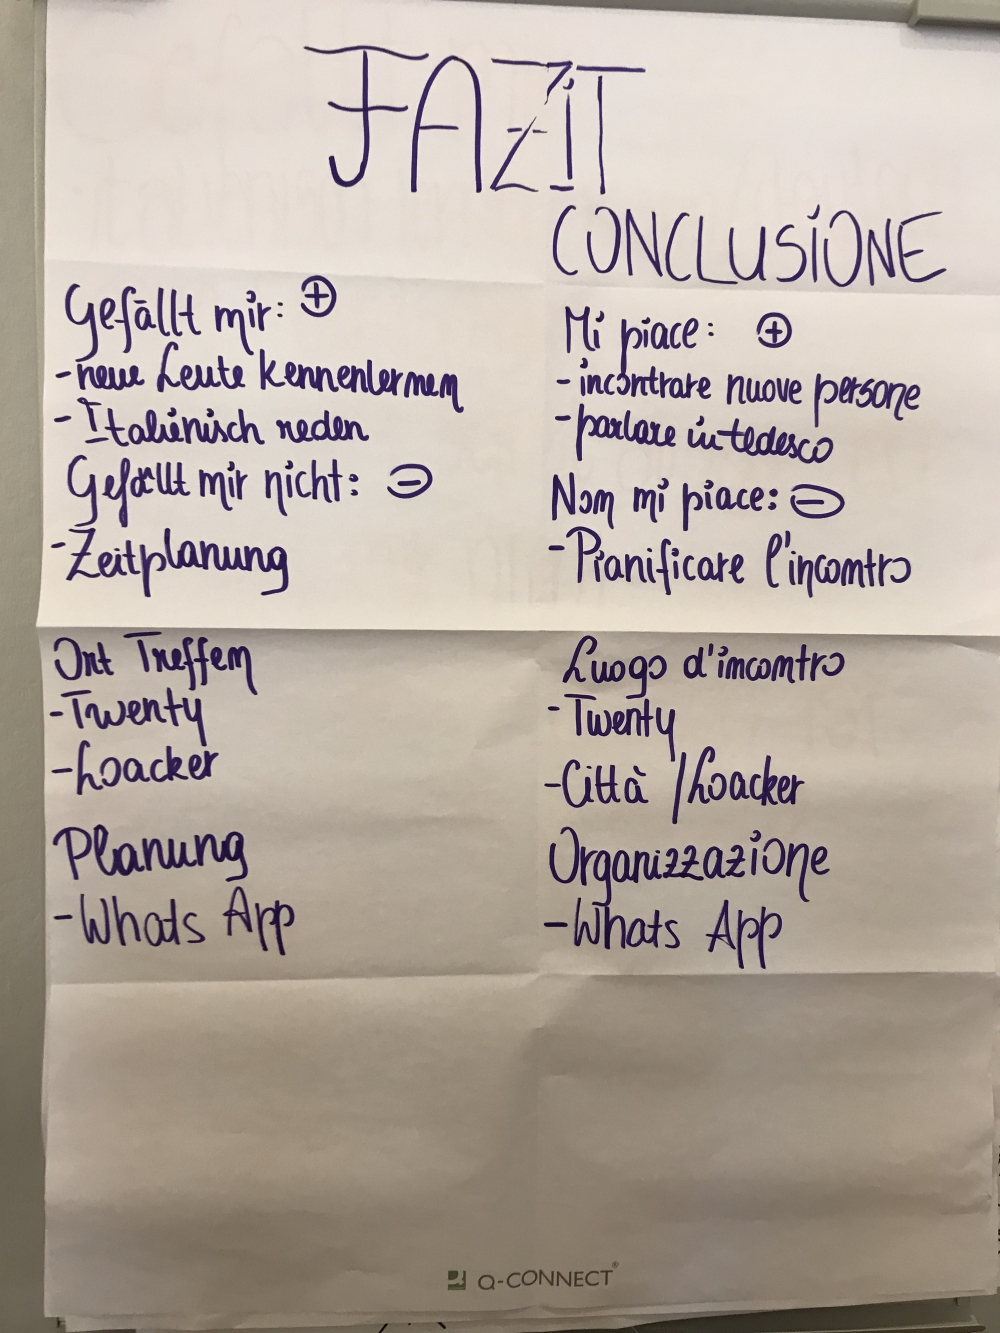 FAZIT
CONCLUSIONE
Gefällt mir: +
- neue Leute kennenlernen
- Italienisch reden
Gefällt mir nicht: -
- Zeitplanung
Ort Treffen
- Twenty
- Loacker
Planung
- Whats App
Mi piace: +
- incontrare nuove persone
- parlare in tedesco
Non mi piace: -
- Pianificare l'incontro
Luogo d'incontro
- Twenty
- Città / Loacker
Organizzazione
- Whats App
Q-CONNECT®